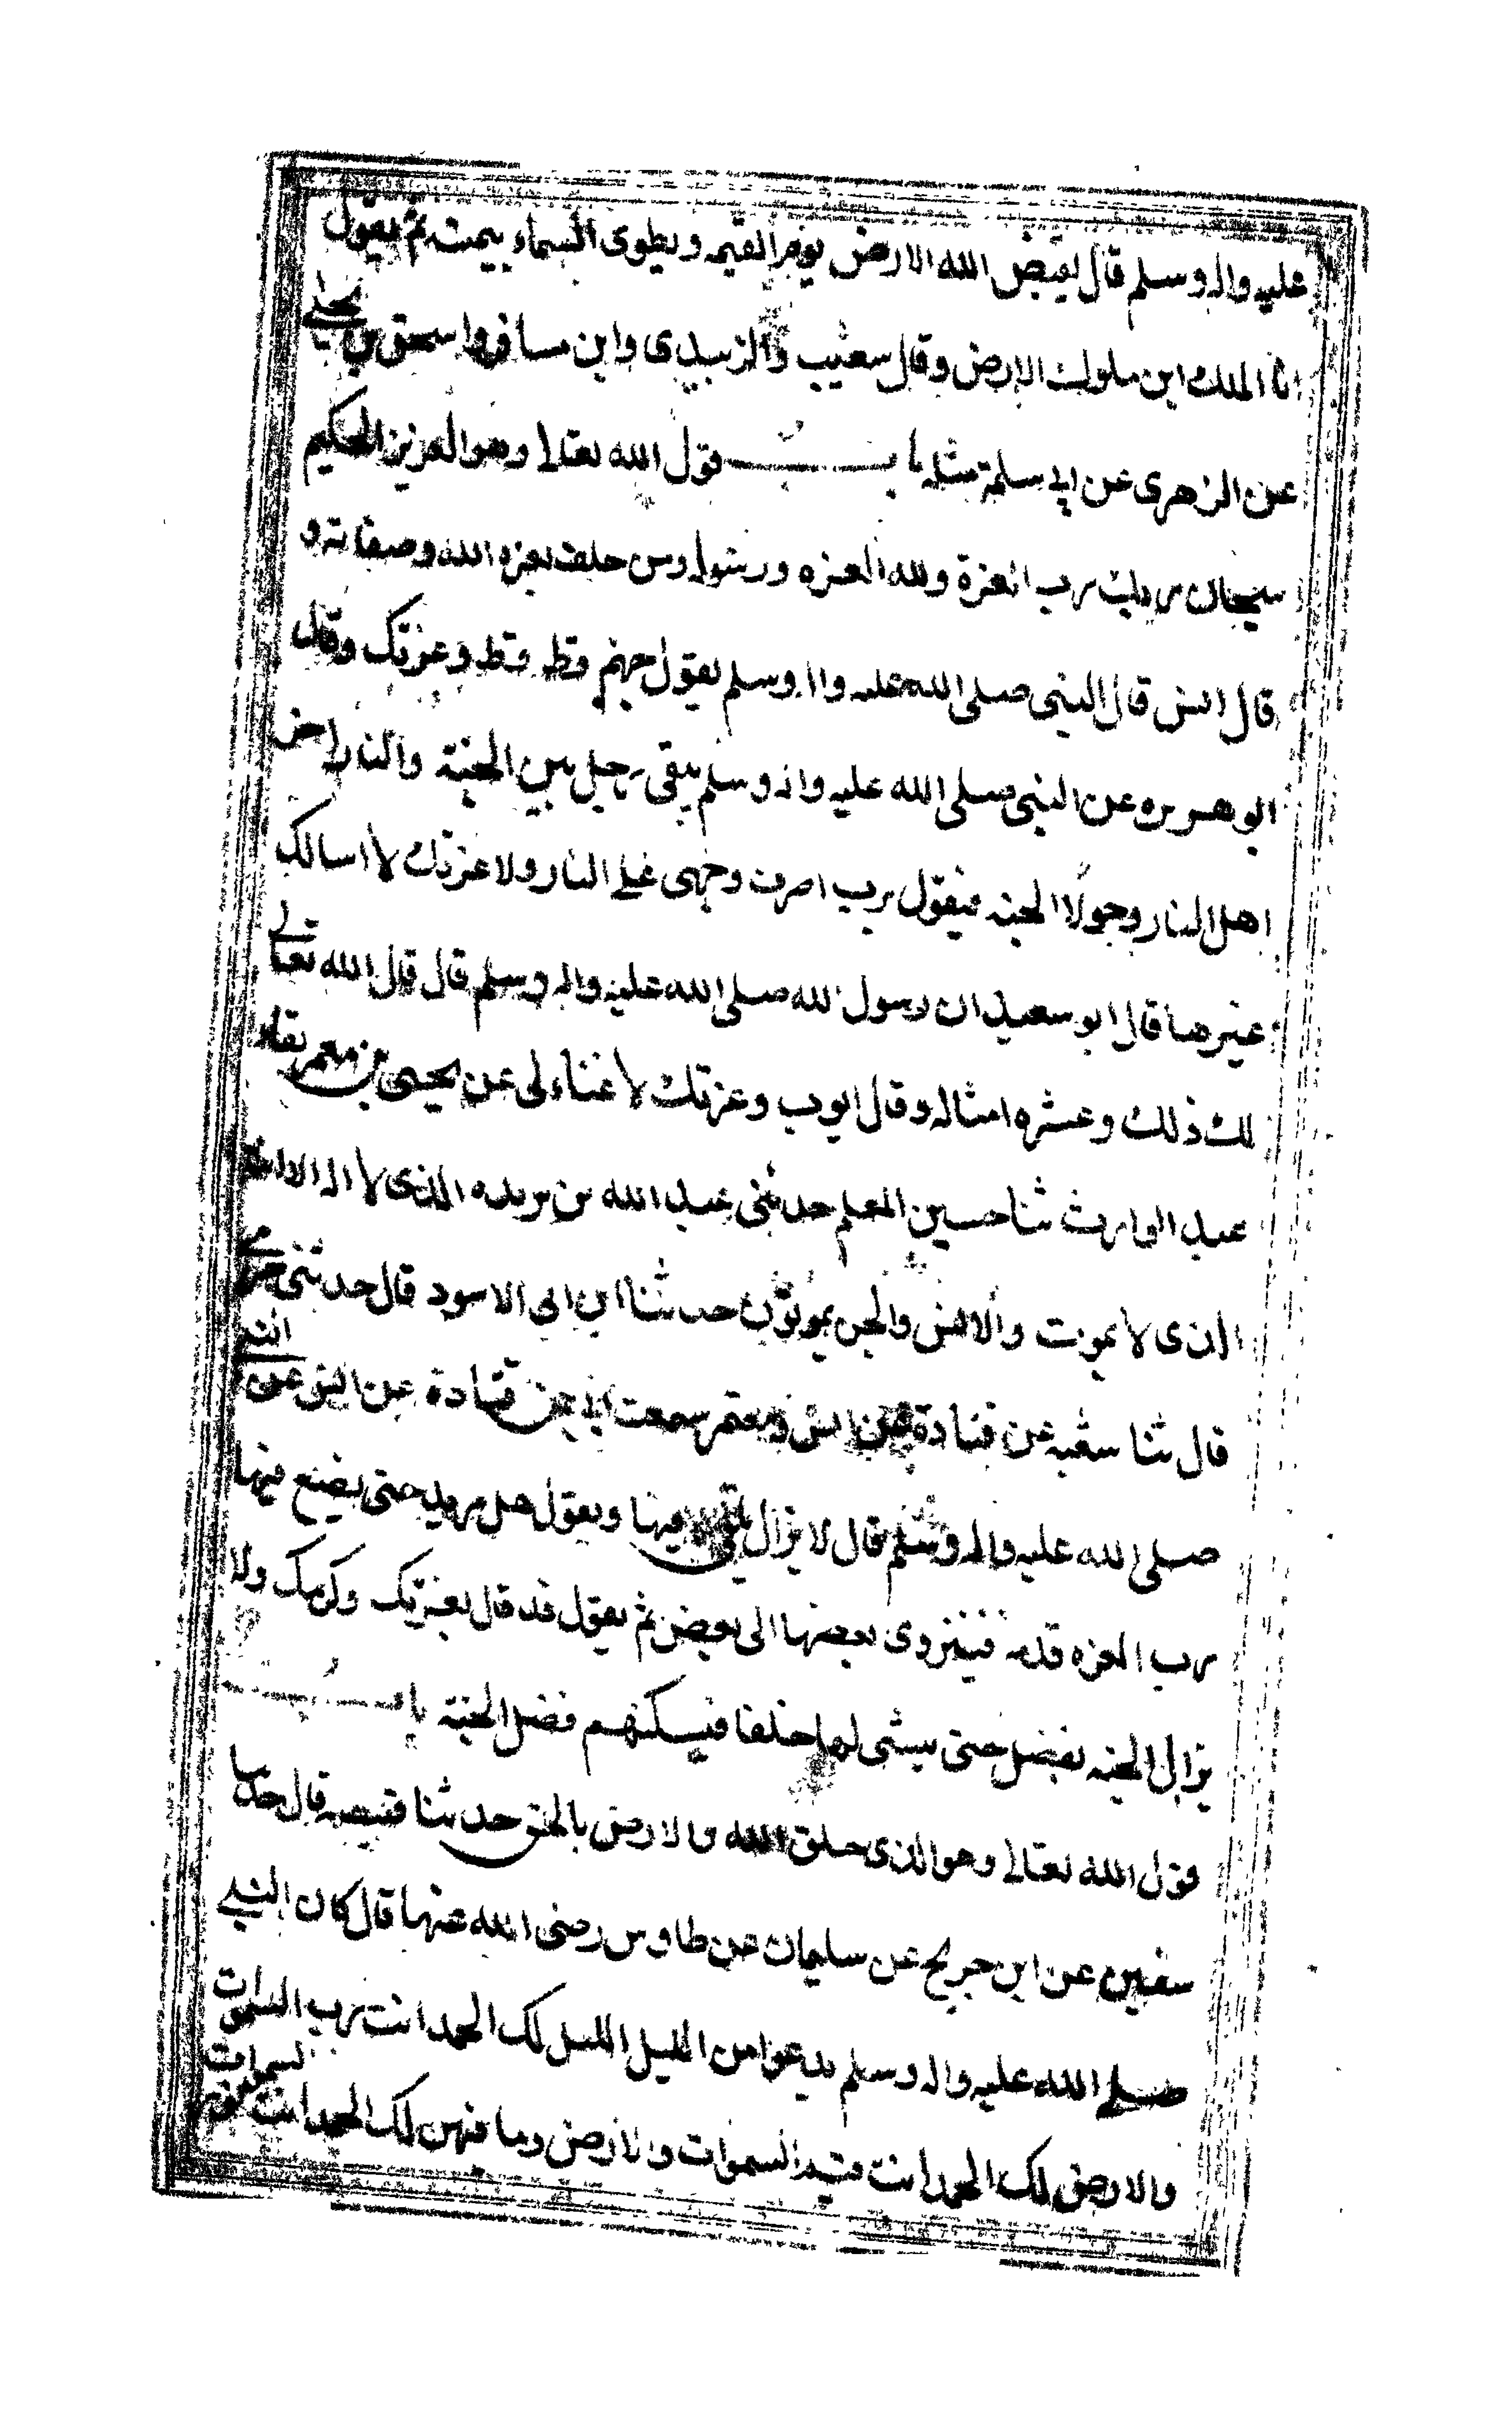 عليه واله وسلم قال يقبض الله الارض يوم القيمه ويطوى السماء بيمينه ثم يقول
انا الملك اين ملوك الارض وقال شعيب والزبيدى وابن مسافر واسحق بن يحيى
عن الزهرى عن ابى سلمة مثله باب قول الله تعالى وهو العزيز الحكيم
سبحان ربك رب العزة ولله العزه ورسوله ومن حلف بعزه الله وصفاته و
قال انس قال النبى صلى الله عليه واله وسلم يقول جهنم قط قط وعزتك وقال
ابوهريره عن النبى صلى الله عليه واله وسلم يبقى رجل بين الجنة والنار اخر
اهل النار دخولا الجنه فيقول رب اصرف وجهى على النار ولا عزتك لا اسالك
غيرها قال ابو سعيد ان رسول الله صلى الله عليه واله وسلم قال قال الله تعالى
لك ذلك وعشره امثاله وقال ايوب وعزتك لا غناء لى عن يحيى بن معمر
عبد الوارث ثنا حسين المعلم حدثنى عبد الله بن بريده الذى لا اله الا انت
الذى لا يموت والانس والجن يموتون حدثنا ابن ابى الاسود قال حدثنى حرمي
قال ثنا شعبه عن قتادة عن انس ومعتمر سمعت ابى عن قتادة عن النبى عن انس
صلى الله عليه واله وسلم قال لا يزال يلقى فيها ويقول هل مزيد حتى يضع فيها
رب العزه قدمه فينزوى بعضها الى بعض ثم يقول قد قال بعزتك وكرمك ولا
يزال الجنه بفضل حتى ينشى لها خلقا فيسكنهم فضل الجنة باب
قول الله تعالى وهو الذى خلق الله والارض بالحق حدثنا قبيصه قال حدثنا
سفين عن ابن جريج عن سليمان عن طاوس رضى الله عنها قال كان النبى
صلى الله عليه واله وسلم يدعوا من الليل الليل لك الحمد انت رب السموات
والارض لك الحمد انت قيم السموات والارض وما فيهن لك الحمد انت نور السموات